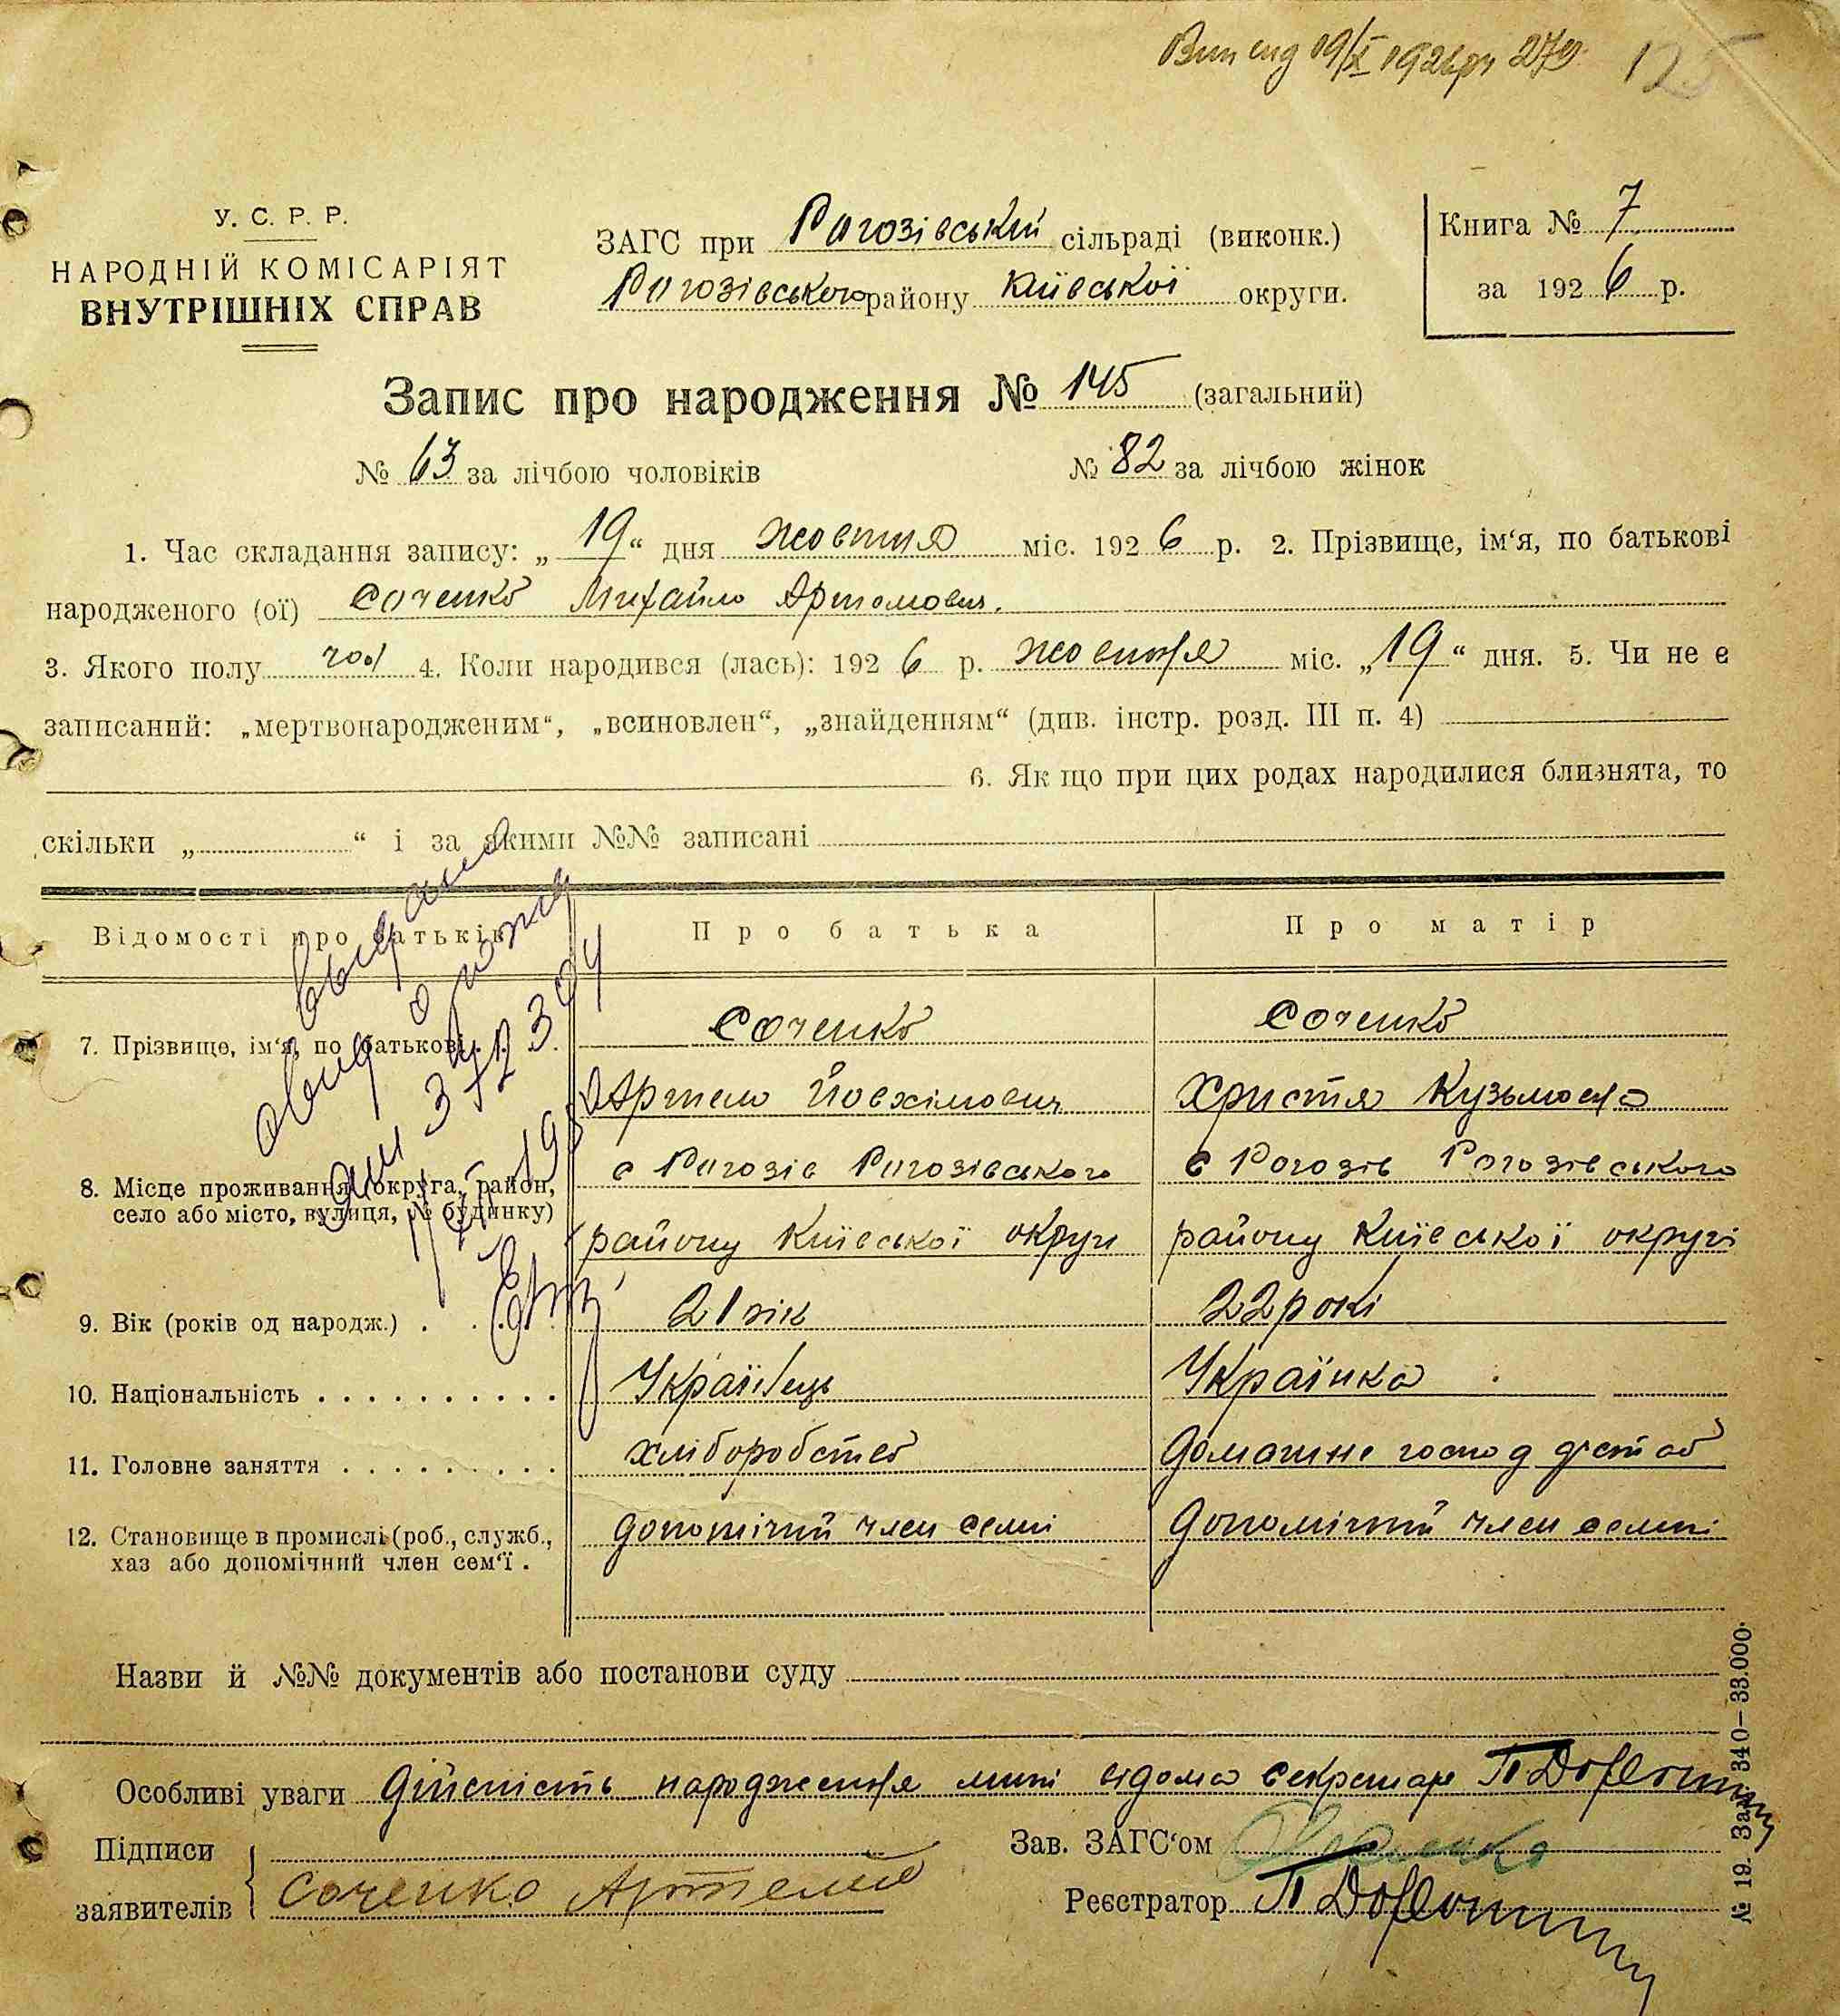 125
У. С. Р. Р.
НАРОДНІЙ КОМІСАРІЯТ
ВНУТРІШНІХ СПРАВ
ЗАГС при Рогозівський сільраді (виконк.)
Рогозівського району Київської округи.
Книга № 7
за 1926 р.
Запис про народження № 145 (загальний)
№ 63 за лічбою чоловіків № 82 за лічбою жінок
1. Час складання запису: „ 19 “ дня жовтня міс. 1926 р. 2. Прізвище, ім‘я, по батькові
народженого (ої) Соченко Михайло Артомович.
3. Якого полу чол 4. Коли народився (лась): 1926 р. жовтня міс. „19“ дня. 5. Чи не є
записаний: „мертвонародженим“, „всиновлен“, „знайденням“ (див. інстр. розд. III п. 4)
6. Як що при цих родах народилися близнята, то
скільки „ “ і за якими №№ записані
Відомості про батьків Про батька Про матір
7. Прізвище, ім‘я, по батькові Соченко Соченко
Артем Йовхімович Христя Кузьмовна
8. Місце проживання (округа, район, с Рогозів Рогозівського с Рогозів Рогозівського
село або місто, вулиця, № будинку) району Київської округи району Київської округі
9. Вік (років од народж.) . . . 21 рік 22 рокі
10. Національність . . . . . . . . . . Українець Українка
11. Головне заняття . . . . . . . . . хліборобство домашне господарство
12. Становище в промислі (роб., служб., допомічний член семі допомічний член семні
хаз або допомічний член сем‘ї .
видано
Назви й №№ документів або постанови суду
Особливі уваги Дійсність народження мині відома секретар
Підписи
заявителів Соченко Артем
Зав. ЗАГС‘ом
Реєстратор
№ 19. Зак. 340—33.000.